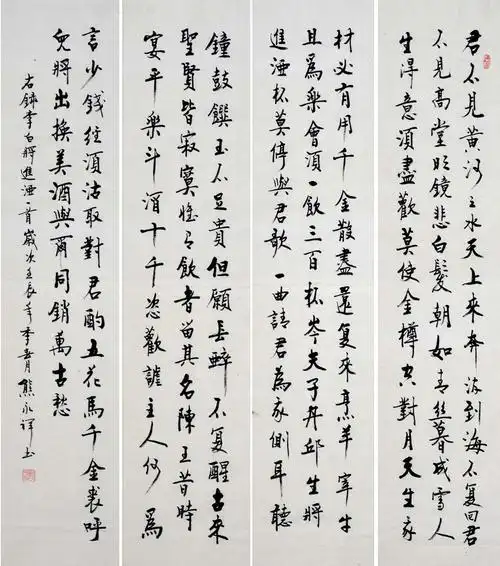 君不見黃河之水天上來奔流到海不復回君
不見高堂明鏡悲白髮朝如青絲暮成雪人
生得意須盡歡莫使金樽空對月天生我
材必有用千金散盡還復來烹羊宰牛
且為樂會須一飲三百杯岑夫子丹邱生將
進酒杯莫停與君歌一曲請君為我側耳聽
鐘鼓饌玉不足貴但願長醉不復醒古來
聖賢皆寂寞惟有飲者留其名陳王昔時
宴平樂斗酒十千恣歡謔主人何為
言少錢徑須沽取對君酌五花馬千金裘呼
兒將出換美酒與爾同銷萬古愁
右錄李白將進酒一首歲次壬辰年季月熊永祥書